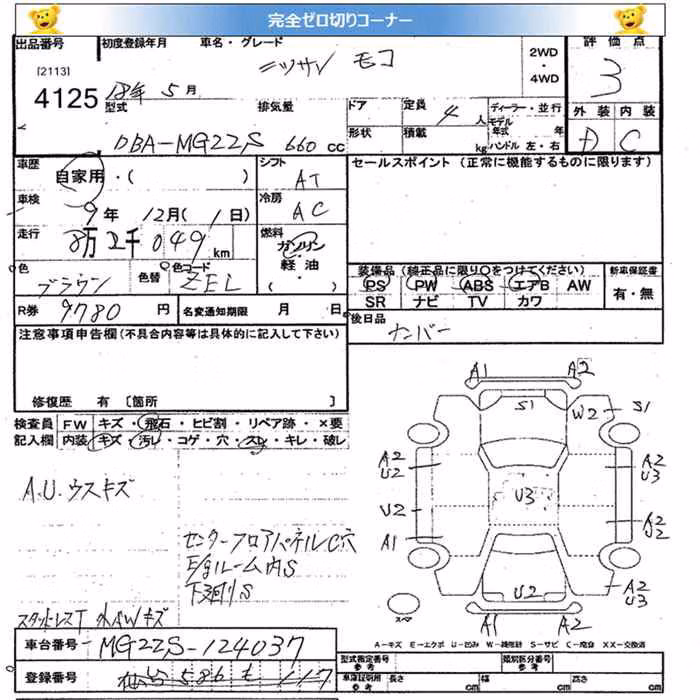 完全ゼロ切りコーナー
出品番号 初度登録年月 車名・グレード 2WD ・ 4WD 評価点
[2113]
4125 18年 5月 ニッサン モコ 3
型式 排気量 ドア 定員 4人 ディーラー・並行 外装 内装
DBA-MG22S 660cc 形状 積載 kg モデル年式 年 ハンドル 左・右 D C
車歴 自家用・( ) シフト AT セールスポイント(正常に機能するものに限ります)
車検 9年 12月(1日) 冷房 AC
走行 8万2千049km 燃料 ガソリン 軽油 ( )
色 ブラウン 色替 色コード ZEL 装備品(純正品に限り○をつけてください) 新車保証書
PS PW ABS エアB AW 有・無
SR ナビ TV カワ
R券 9780円 名変通知期限 月 日 後日品
ナンバー
注意事項申告欄(不具合内容等は具体的に記入して下さい)
修復歴 有 〔箇所 〕
検査員 FW キズ・飛石・ヒビ割・リペア跡・×要
記入欄 内装 キズ・汚レ・コゲ・穴・スレ・キレ・破レ
A1 A2
S1 W2 S1
A2 U2 A2 U3
U3
U2 A2 U2
A1 A2 U3
U2
A1 A2
スペア
A.U.ウスキズ
センターフロアパネルC穴
E/gルーム内S
下廻りS
スタッドレスT 外AWキズ
A=キズ E=エクボ U=凹み W=補修跡 S=サビ C=腐食 XX=交換済
車台番号 MG22S-124037 型式指定番号 参考 類別区分番号 参考
登録番号 車庫証明用 参考 長さ cm 幅 cm 高さ cm